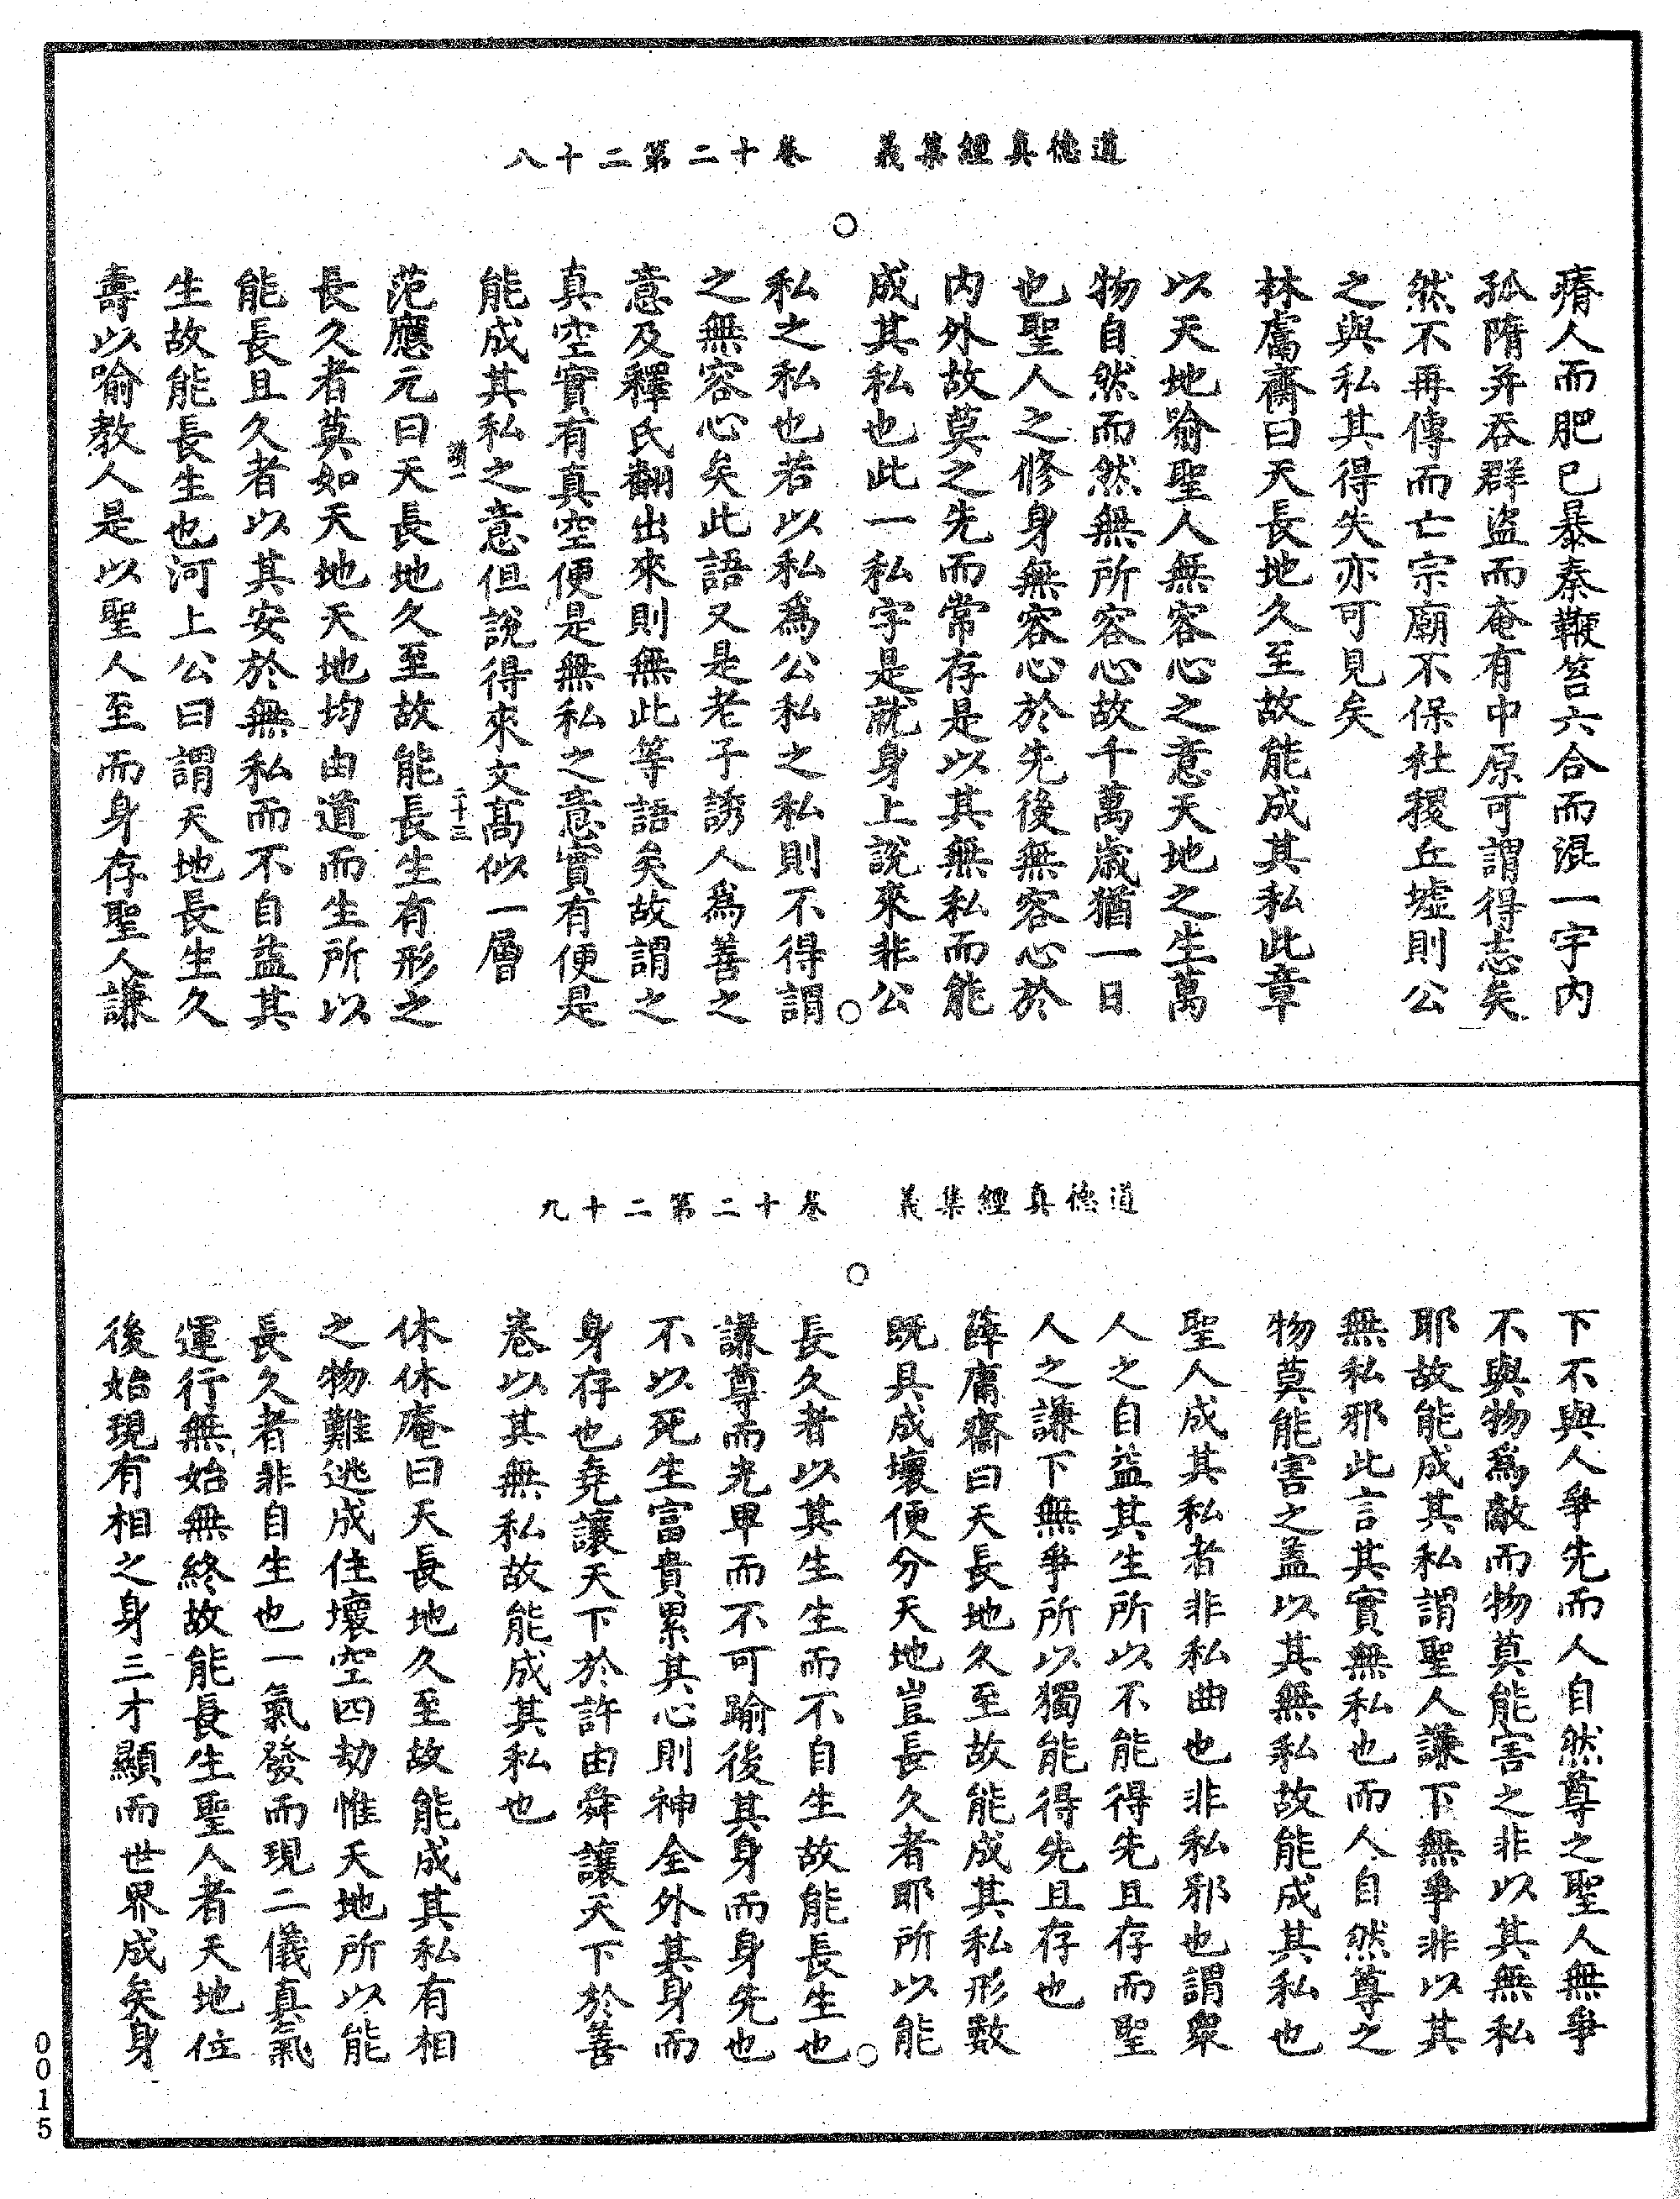 道德真經集義　卷十二第二十八
瘠人而肥已暴秦鞭笞六合而混一宇内
孤隋并吞群盜而奄有中原可謂得志矣
然不再傳而亡宗廟不保社稷丘墟則公
之與私其得失亦可見矣
林鬳齋曰天長地久至故能成其私此章
以天地喻聖人無容心之意天地之生萬
物自然而然無所容心故千萬歲猶一日
也聖人之修身無容心於先後無容心於
内外故莫之先而常存是以其無私而能
成其私也此一私字是就身上說來非公
私之私也若以私爲公私之私則不得謂
之無容心矣此語又是老子誘人爲善之
意及釋氏翻出來則無此等語矣故謂之
真空實有真空便是無私之意實有便是
能成其私之意但說得來文高似一層
二十三
范應元曰天長地久至故能長生有形之
長久者莫如天地天地均由道而生所以
能長且久者以其安於無私而不自益其
生故能長生也河上公曰謂天地長生久
壽以喻教人是以聖人至而身存聖人謙
道德真經集義　卷十二第二十九
下不與人爭先而人自然尊之聖人無爭
不與物爲敵而物莫能害之非以其無私
耶故能成其私謂聖人謙下無爭非以其
無私邪此言其實無私也而人自然尊之
物莫能害之蓋以其無私故能成其私也
聖人成其私者非私曲也非私邪也謂眾
人之自益其生所以不能得先且存而聖
人之謙下無爭所以獨能得先且存也
薛庸齋曰天長地久至故能成其私形數
既具成壞便分天地豈長久者耶所以能
長久者以其生生而不自生故能長生也
謙尊而光卑而不可踰後其身而身先也
不以死生富貴累其心則神全外其身而
身存也堯讓天下於許由舜讓天下於善
卷以其無私故能成其私也
休休庵曰天長地久至故能成其私有相
之物難逃成住壞空四劫惟天地所以能
長久者非自生也一氣發而現二儀真氣
運行無始無終故能長生聖人者天地位
後始現有相之身三才顯而世界成矣身
0015